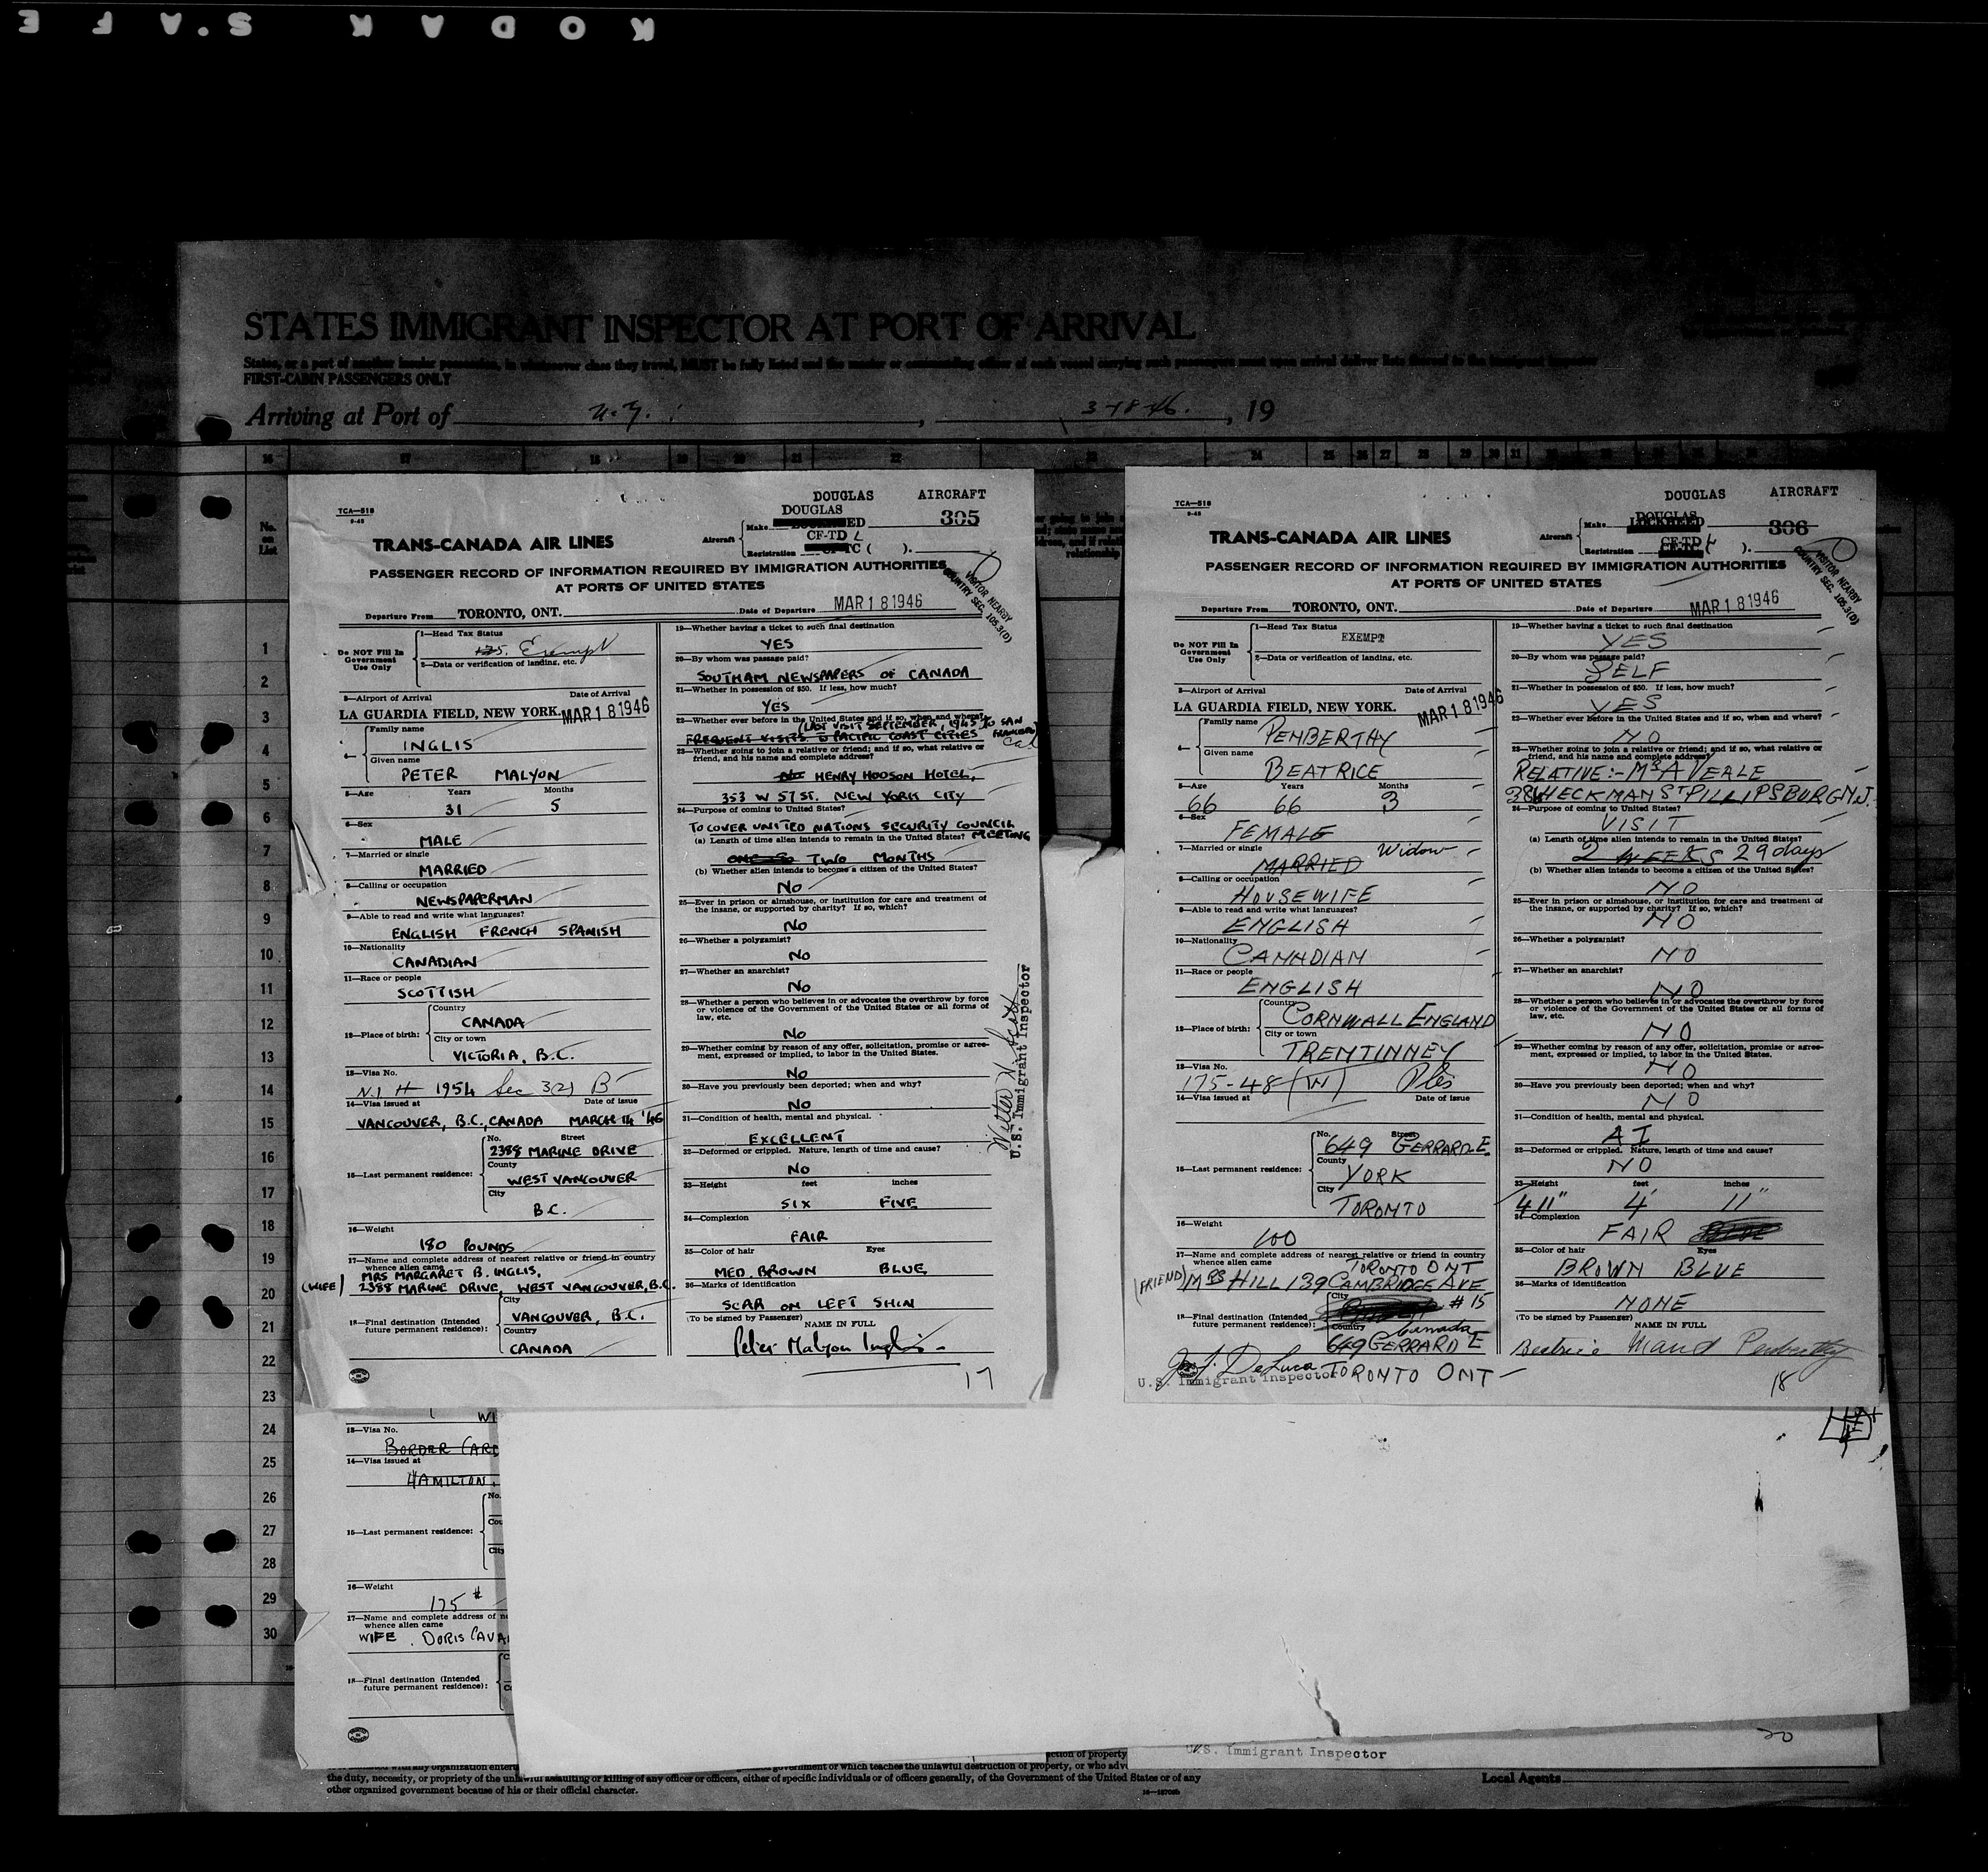 KODAK S.AFE
STATES IMMIGRANT INSPECTOR AT PORT OF ARRIVAL
FIRST-CABIN PASSENGERS ONLY
Arriving at Port of N.Y. , 3-18-46. , 19
No. on List
1
2
3
4
5
6
7
8
9
10
11
12
13
14
15
16
17
18
19
20
21
22
23
24
25
26
27
28
29
30
TCA—518
9-45
DOUGLAS AIRCRAFT
DOUGLAS
305
Aircraft
Make
CF-TD L
Registration ( ).
TRANS-CANADA AIR LINES
PASSENGER RECORD OF INFORMATION REQUIRED BY IMMIGRATION AUTHORITIES
AT PORTS OF UNITED STATES
VISITOR NEARBY
COUNTRY SEC. 105.3(D)
Departure From TORONTO, ONT. Date of Departure MAR 18 1946
Do NOT Fill In Government Use Only
1—Head Tax Status
Exempt
2—Data or verification of landing, etc.
3—Airport of Arrival Date of Arrival
LA GUARDIA FIELD, NEW YORK. MAR 18 1946
4—
Family name
INGLIS
Given name
PETER MALYON
5—Age Years Months
31 5
6—Sex
MALE
7—Married or single
MARRIED
8—Calling or occupation
NEWSPAPERMAN
9—Able to read and write what languages?
ENGLISH FRENCH SPANISH
10—Nationality
CANADIAN
11—Race or people
SCOTTISH
12—Place of birth:
Country
CANADA
City or town
VICTORIA, B.C.
13—Visa No.
N.I # 1954 Sec 3(2) B
14—Visa issued at Date of issue
VANCOUVER, B.C., CANADA MARCH 14 '46
15—Last permanent residence:
No. Street
2388 MARINE DRIVE
County
WEST VANCOUVER
City
B.C.
16—Weight
180 POUNDS
17—Name and complete address of nearest relative or friend in country
whence alien came
MRS MARGARET B. INGLIS,
(WIFE) 2388 MARINE DRIVE, WEST VANCOUVER, B.C.
18—Final destination (Intended future permanent residence):
City
VANCOUVER, B.C.
Country
CANADA
19—Whether having a ticket to such final destination
YES
20—By whom was passage paid?
SOUTHAM NEWSPAPERS OF CANADA
21—Whether in possession of $50. If less, how much?
YES
22—Whether ever before in the United States and if so, when and where?
(LAST VISIT SEPTEMBER, 1945 TO SAN FRANCISCO) Cal
FREQUENT VISITS TO PACIFIC COAST CITIES
23—Whether going to join a relative or friend; and if so, what relative or
friend, and his name and complete address?
HENRY HUDSON HOTEL,
353 W 57 ST. NEW YORK CITY
24—Purpose of coming to United States?
TO COVER UNITED NATIONS SECURITY COUNCIL MEETING
(a) Length of time alien intends to remain in the United States?
ONE TO TWO MONTHS
(b) Whether alien intends to become a citizen of the United States?
NO
25—Ever in prison or almshouse, or institution for care and treatment of
the insane, or supported by charity? If so, which?
NO
26—Whether a polygamist?
NO
27—Whether an anarchist?
NO
28—Whether a person who believes in or advocates the overthrow by force
or violence of the Government of the United States or all forms of
law, etc.
NO
29—Whether coming by reason of any offer, solicitation, promise or agree-
ment, expressed or implied, to labor in the United States.
NO
30—Have you previously been deported; when and why?
NO
31—Condition of health, mental and physical.
EXCELLENT
32—Deformed or crippled. Nature, length of time and cause?
NO
33—Height feet inches
SIX FIVE
34—Complexion
FAIR
35—Color of hair Eyes
MED. BROWN BLUE
36—Marks of identification
SCAR ON LEFT SHIN
(To be signed by Passenger) NAME IN FULL
Peter Malyon Inglis
17
U.S. Immigrant Inspector
TCA—518
9-45
DOUGLAS AIRCRAFT
DOUGLAS
306
Aircraft
Make LOCKHEED
CF-TD
Registration ( ).
TRANS-CANADA AIR LINES
PASSENGER RECORD OF INFORMATION REQUIRED BY IMMIGRATION AUTHORITIES
AT PORTS OF UNITED STATES
VISITOR NEARBY
COUNTRY SEC. 105.3(D)
Departure From TORONTO, ONT. Date of Departure MAR 18 1946
Do NOT Fill In Government Use Only
1—Head Tax Status
EXEMPT
2—Data or verification of landing, etc.
3—Airport of Arrival Date of Arrival
LA GUARDIA FIELD, NEW YORK. MAR 18 1946
4—
Family name
PENBERTHY
Given name
BEATRICE
5—Age Years Months
66 66 3
6—Sex
FEMALE
7—Married or single
MARRIED Widow
8—Calling or occupation
HOUSEWIFE
9—Able to read and write what languages?
ENGLISH
10—Nationality
CANADIAN
11—Race or people
ENGLISH
12—Place of birth:
Country
CORNWALL ENGLAND
City or town
TREMTINNEY
13—Visa No.
175-48 (W)
14—Visa issued at Date of issue
15—Last permanent residence:
No. Street
649 GERRARD. E.
County
YORK
City
TORONTO
16—Weight
100
17—Name and complete address of nearest relative or friend in country
whence alien came
TORONTO ONT
(FRIEND) MRS HILL 139 CAMBRIDGE AVE
#15
18—Final destination (Intended future permanent residence):
City
Country
Canada
649 GERRARD E
TORONTO ONT
J. DeLuca
U.S. Immigrant Inspector
19—Whether having a ticket to such final destination
YES
20—By whom was passage paid?
SELF
21—Whether in possession of $50. If less, how much?
YES
22—Whether ever before in the United States and if so, when and where?
NO
23—Whether going to join a relative or friend; and if so, what relative or
friend, and his name and complete address?
RELATIVE:- MRS A VEALE
38 HECKMAN ST PILLIPSBURG N.J.
24—Purpose of coming to United States?
VISIT
(a) Length of time alien intends to remain in the United States?
2 WEEKS 29 days
(b) Whether alien intends to become a citizen of the United States?
NO
25—Ever in prison or almshouse, or institution for care and treatment of
the insane, or supported by charity? If so, which?
NO
26—Whether a polygamist?
NO
27—Whether an anarchist?
NO
28—Whether a person who believes in or advocates the overthrow by force
or violence of the Government of the United States or all forms of
law, etc.
NO
29—Whether coming by reason of any offer, solicitation, promise or agree-
ment, expressed or implied, to labor in the United States.
NO
30—Have you previously been deported; when and why?
NO
31—Condition of health, mental and physical.
A I
32—Deformed or crippled. Nature, length of time and cause?
NO
33—Height feet inches
4 11" 4' 11"
34—Complexion
FAIR
35—Color of hair Eyes
BROWN BLUE
36—Marks of identification
NONE
(To be signed by Passenger) NAME IN FULL
Beatrice Maud Penberthy
18
13—Visa No.
BORDER CARD
14—Visa issued at
HAMILTON,
15—Last permanent residence:
No.
16—Weight
175 #
17—Name and complete address of
whence alien came
WIFE. DORIS
18—Final destination (Intended
future permanent residence):
20
U.S. Immigrant Inspector
government or which teaches the unlawful destruction of property, or who
the duty, necessity, or propriety of the unlawful assaulting or killing of any officer or officers, either of specific individuals or of officers generally, of the Government of the United States or of any
other organized government because of his or their official character.
Local Agents